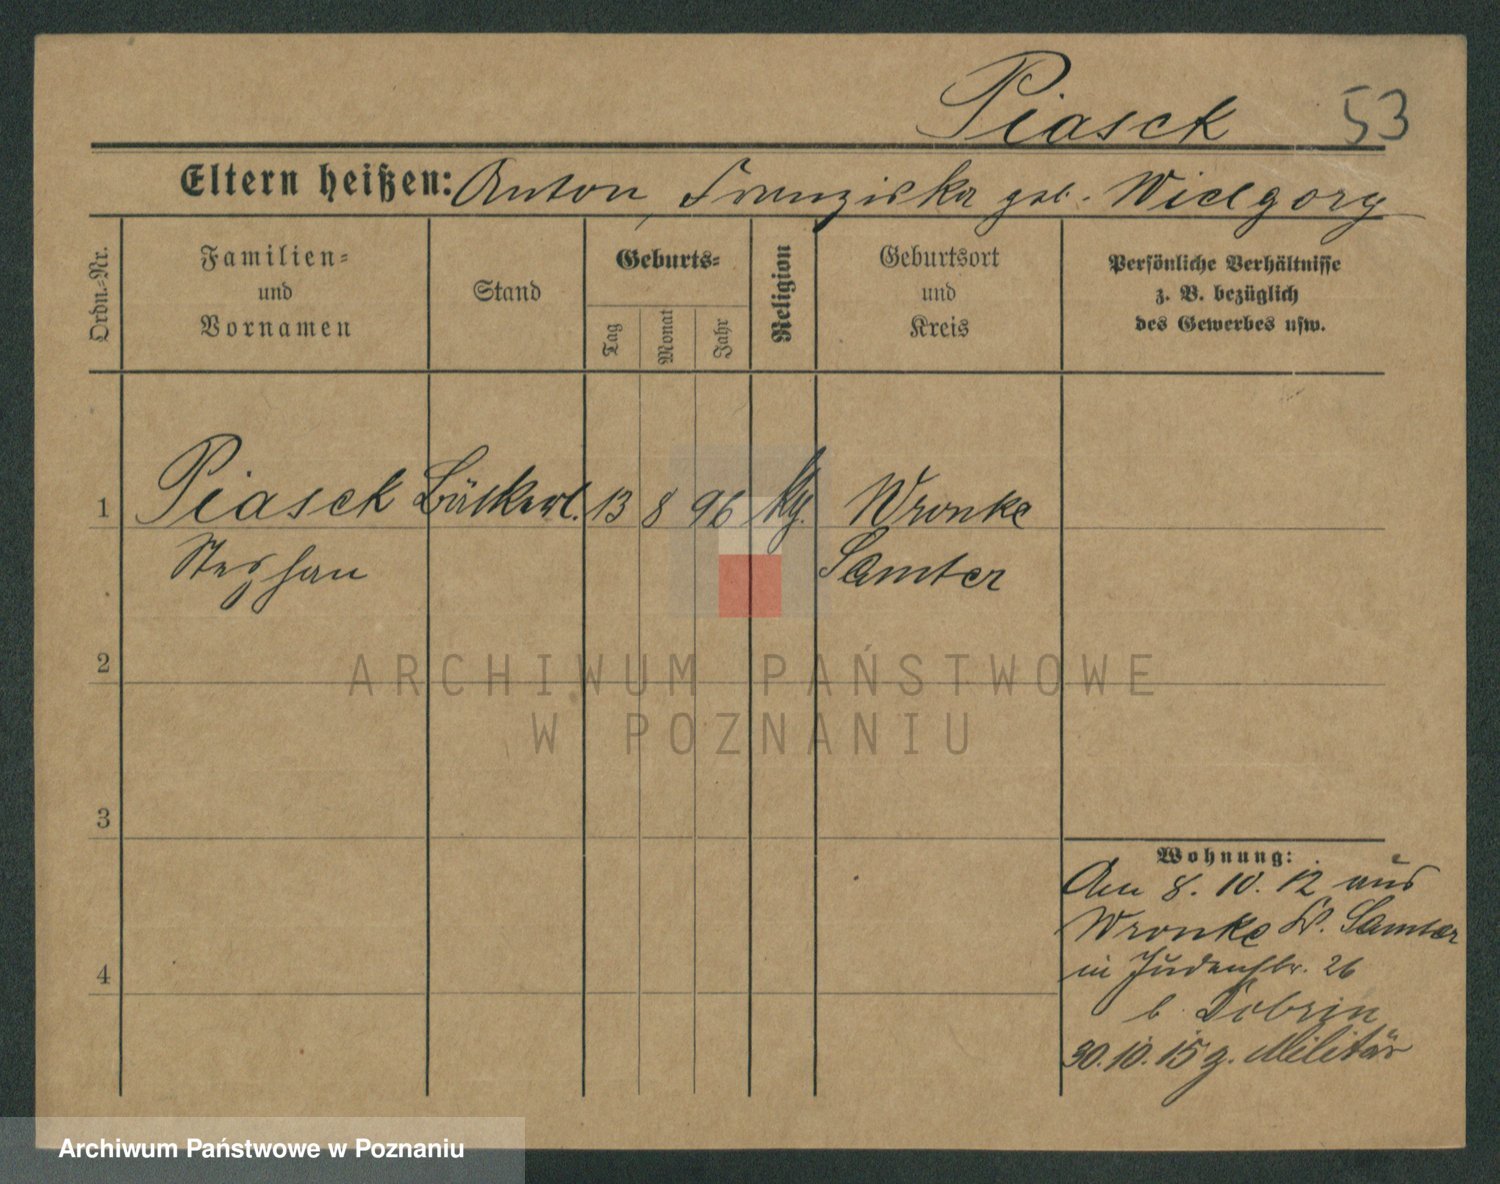 Piasek 53
Eltern heißen: Anton, Franziska geb. Wielgorz
Ordn.-Nr.
Familien-
und
Vornamen
Stand
Geburts-
Tag
Monat
Jahr
Religion
Geburtsort
und
Kreis
Persönliche Verhältnisse
z. B. bezüglich
des Gewerbes usw.
1 Piasek Bäckerl. 13 8 96 Wronke
Stephan Samter
2
3
4
Wohnung:
Am 8. 10. 12 aus
Wronke Kr. Samter
in Judenstr. 26
b. Dobrzin
30.10.15 z. Militär
ARCHIWUM PAŃSTWOWE
W POZNANIU
Archiwum Państwowe w Poznaniu